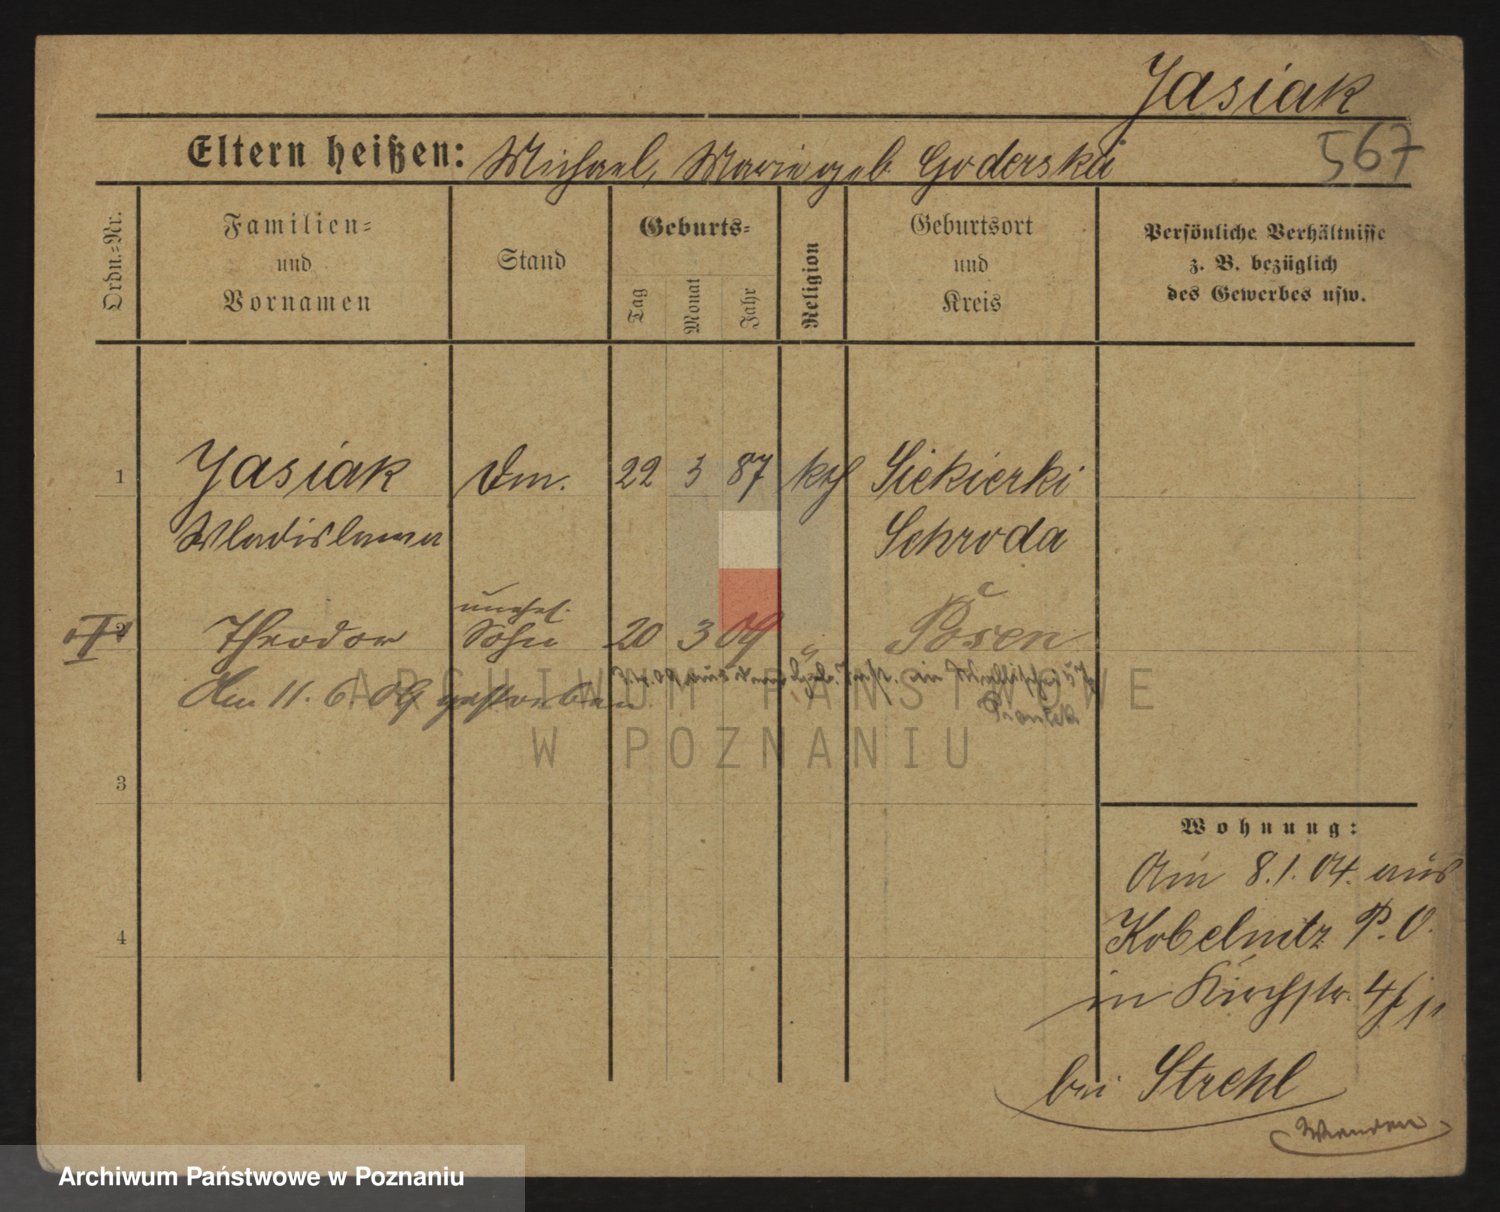 Jasiak
567
Eltern heißen: Michael, Marie geb. Goderska
Ordn.=Nr.
Familien=
und
Vornamen
Stand
Geburts=
Tag
Monat
Jahr
Religion
Geburtsort
und
Kreis
Persönliche Verhältnisse
z. B. bezüglich
des Gewerbes usw.
1 Jasiak Dm. 22 3 87 kth Siekierki
Wladislawa Schroda
unehel.
2 Theodor Sohn 20 3 09 " Posen
Am 11. 6. 09 gestorben
ARCHIWUM PAŃSTWOWE
W POZNANIU
3
Wohnung:
Am 8.1.04. aus
4
Kobelnitz P. O.
in Kirchstr. 4
bei Strehl
Wenden
Archiwum Państwowe w Poznaniu